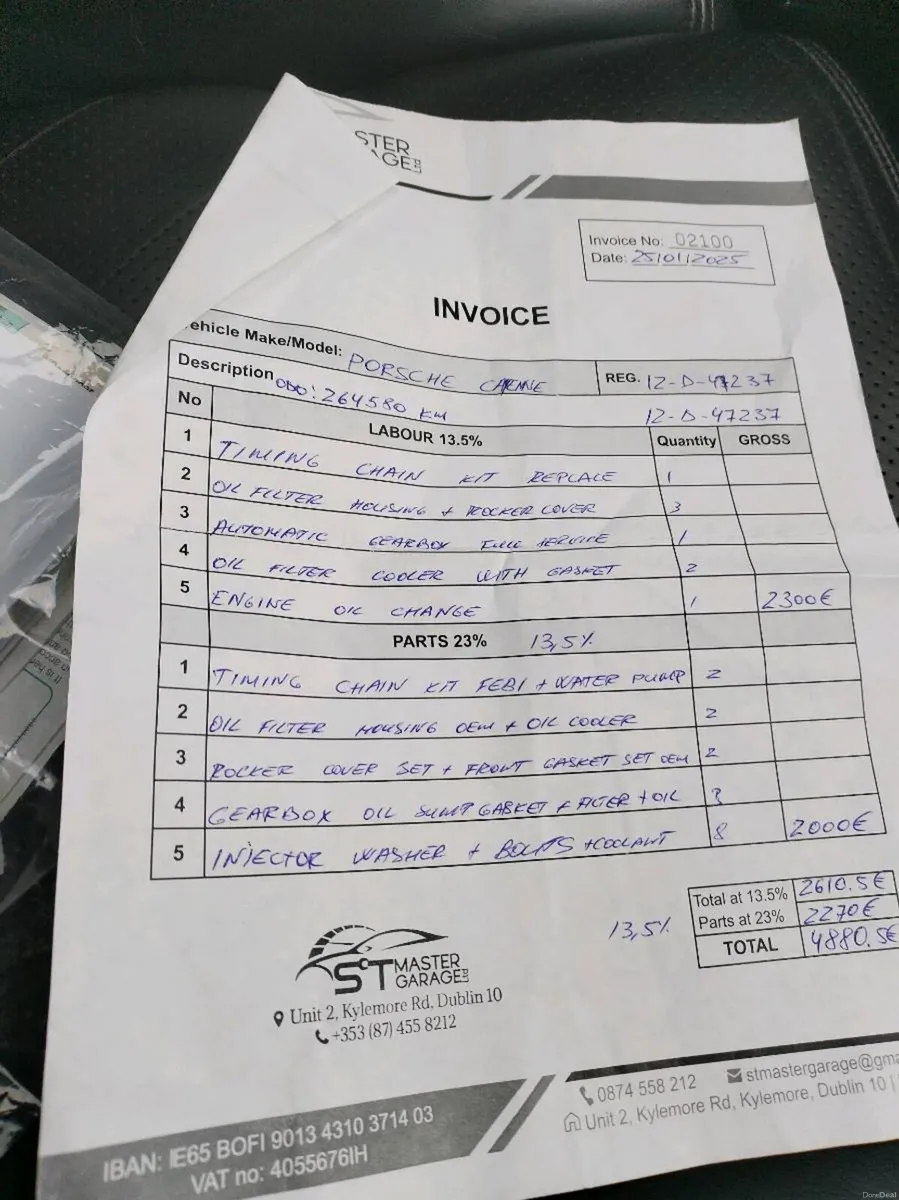 STER
AGE LTD
Invoice No: 02100
Date: 25/01/2025
INVOICE
ehicle Make/Model: PORSCHE CAENNE
REG. 12-D-47237
Description ODO: 264580 KM
12-D-47237
No LABOUR 13.5% Quantity GROSS
1 TIMING CHAIN KIT REPLACE 1
2 OIL FILTER HOUSING + ROCKER COVER 3
3 AUTOMATIC GEARBOX FULL SERVICE 1
4 OIL FILTER COOLER WITH GASKET 2
5 ENGINE OIL CHANGE 1 2300€
PARTS 23% 13,5%
1 TIMING CHAIN KIT FEBI + WATER PUMP 2
2 OIL FILTER HOUSING OEM + OIL COOLER 2
3 ROCKER COVER SET + FRONT GASKET SET OEM 2
4 GEARBOX OIL SUMP GASKET + FILTER + OIL
5 INJECTOR WASHER + BOLTS + COOLANT 8 2000€
Total at 13.5% 2610.5€
13,5% Parts at 23% 2270€
TOTAL 4880.5€
ST MASTER GARAGE LTD
Unit 2, Kylemore Rd, Dublin 10
+353 (87) 455 8212
0874 558 212 stmastergarage@gma
Unit 2, Kylemore Rd, Kylemore, Dublin 10 |
IBAN: IE65 BOFI 9013 4310 3714 03
VAT no: 4055676IH
DoneDeal